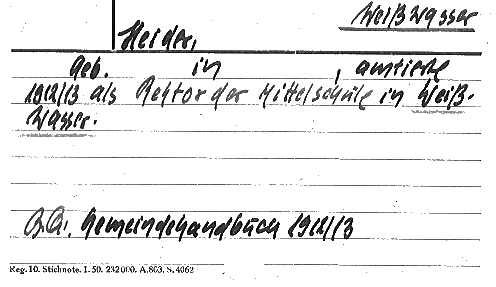 Weißwasser
Heider,
geb. in , amtierte
1912/13 als Rektor der Mittelschule in Weiß-
wasser.
B.Q. Gemeindehandbuch 1912/13
Reg. 10. Stichnote. I. 50. 232000. A.803. S. 4062